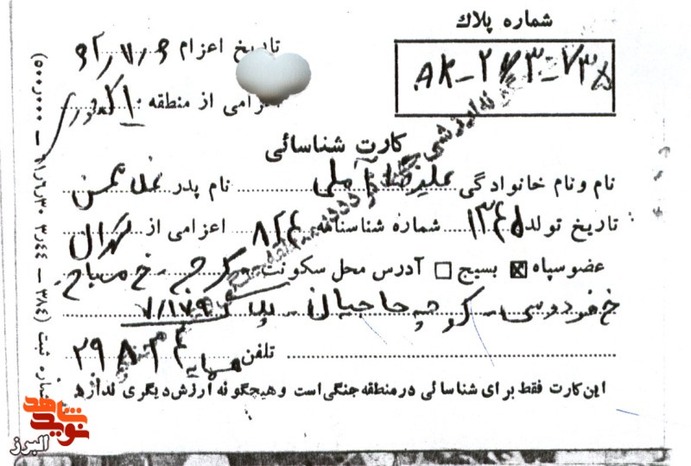 شماره پلاک
AK-273-735
تاریخ اعزام ۶۲,۷,۶
اعزامی از منطقه ۱۰
کارت شناسائی
نام و نام خانوادگی علیرضا آملی نام پدر غلامحسن
تاریخ تولد ۱۳۴۵ شماره شناسنامه ۸۲۴ اعزامی از تهران
عضو سپاه ☒ بسیج ☐ آدرس محل سکونت کرج - خ مصباح
خ فردوسی - کوچه حاجیان - پلاک ۷/۱۷۹
تلفن همسایه ۲۹۸۲۴
این کارت فقط برای شناسائی در منطقه جنگی است و هیچگونه ارزش دیگری ندارد
شماره ثبت (۳۸۴ – ۳۰۴۴ – ۶۱/۶/۳۰ – ۵۰۰,۰۰۰)
نوید شاهد
البرز